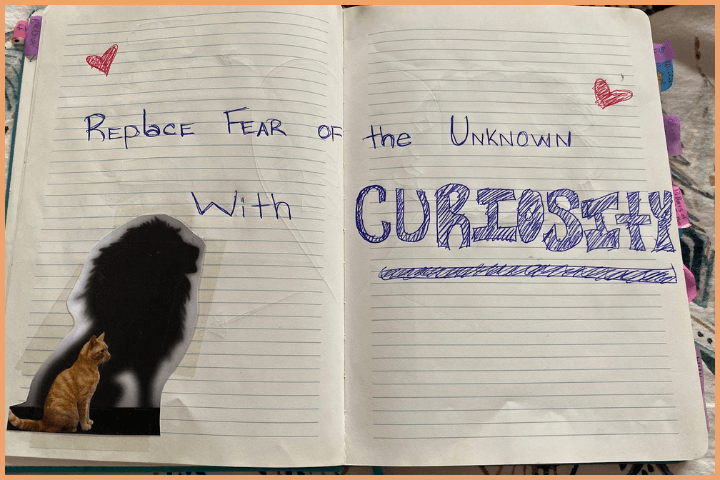 Replace Fear of the Unknown
With CURIOSITY